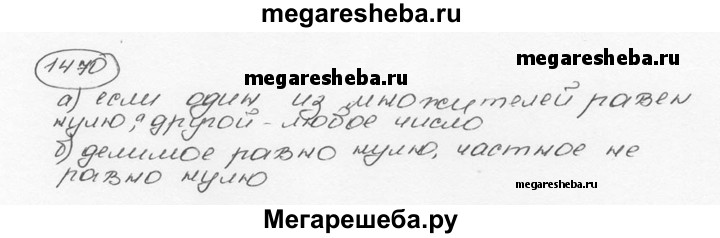 megaresheba.ru
1470
megaresheba.ru
а) если один из множителей равен
нулю, а другой - любое число
б) делимое равно нулю, частное не
равно нулю
megaresheba.ru
Мегарешеба.ру